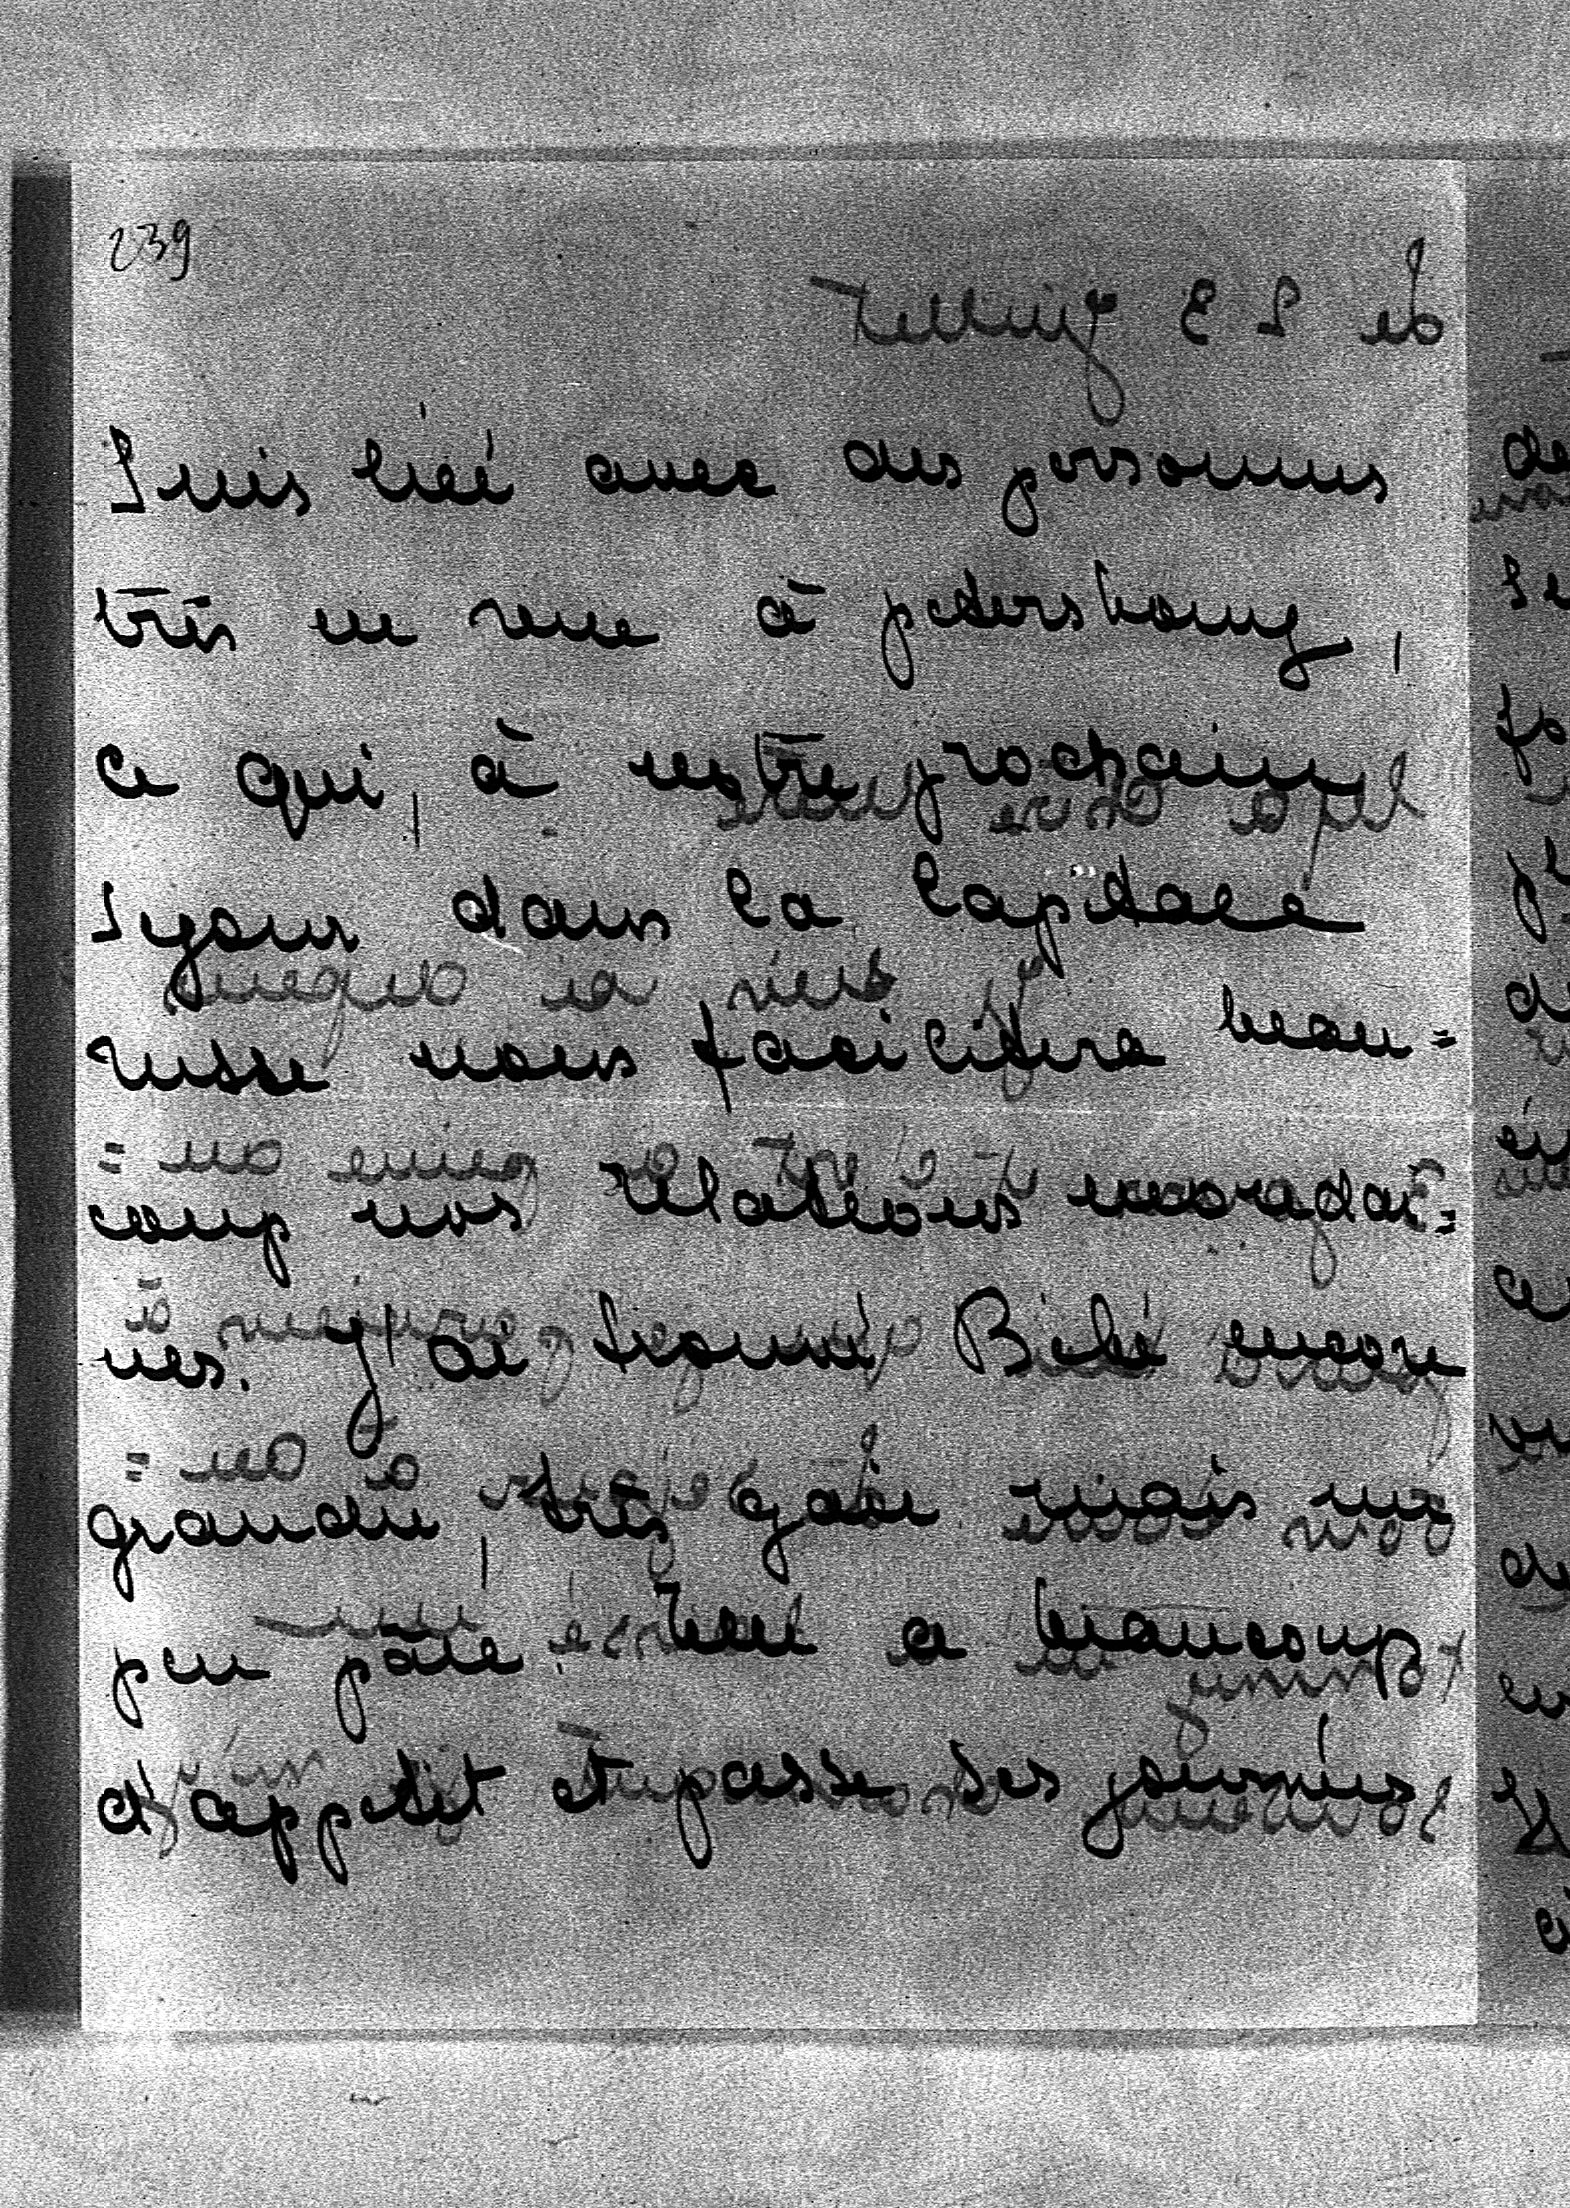 239
Suis liée avec des personnes
très en vue à petersbourg,
ce qui, à notre prochain
Sejour dans la Capitale
russe nous facilitera beau=
coup nos relations mondai=
nes. J'ai trouvé Bébé encore
grandie, très gaie mais un
peu pâle. Elle a beaucoup
d'appetit et passe ses journées